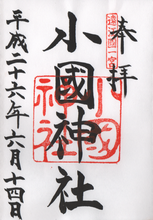 奉拝
遠江國一宮
小國神社
小國神社
平成二十六年六月十四日